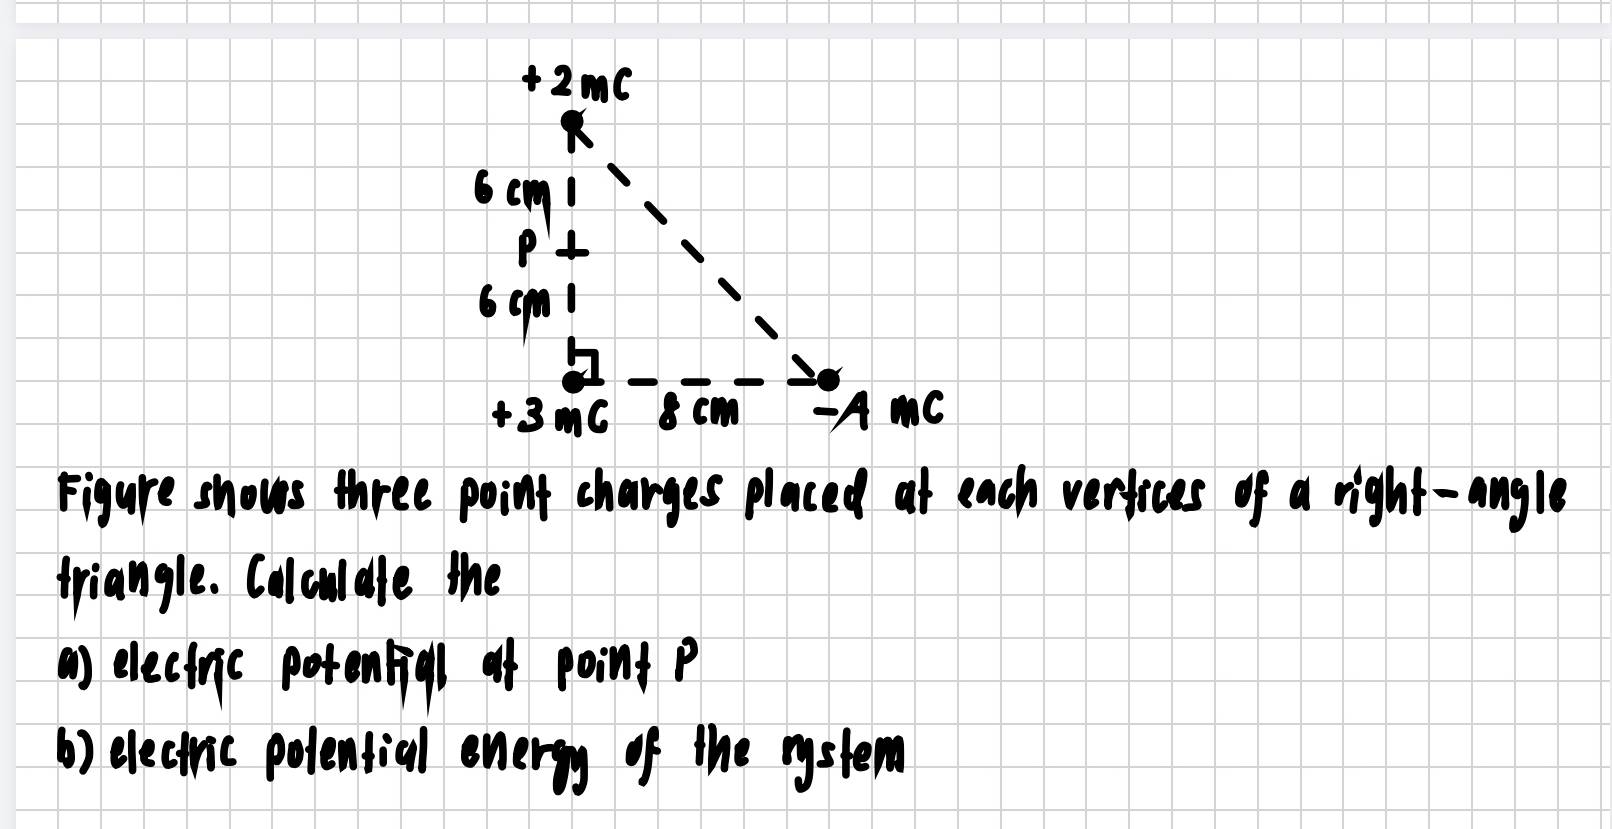 +2 mC
6 cm
P
6 cm
+3 mC 8 cm -4 mC
Figure shows three point charges placed at each vertices of a right-angle
triangle. Calculate the
a) electric potential at point P
b) electric potential energy of the system